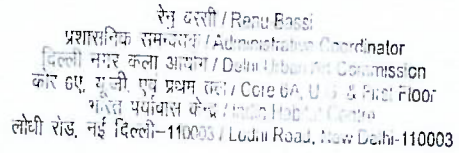 रेनु बस्सी / Renu Bassi
प्रशासनिक समन्वयक / Administrative Coordinator
दिल्ली नगर कला आयोग / Delhi Urban Art Commission
कोर 6ए, यू.जी. एवं प्रथम तल / Core 6A, U.G. & First Floor
भारत पर्यावास केन्द्र / India Habitat Centre
लोधी रोड, नई दिल्ली-110003 / Lodhi Road, New Delhi-110003